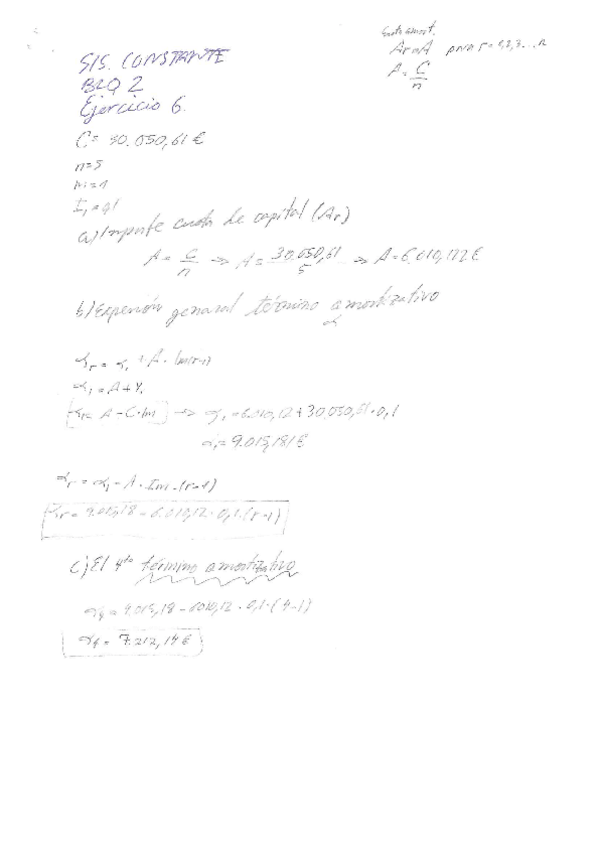 Cuota amort.
Ar = A para r = 1,2,3...n
A = C/n
SIS. CONSTANTE
BLQ 2
Ejercicio 6.
C = 30.050,61 €
n=5
m=1
I₁ = 0,1
a) Importe cuota de capital (Ar)
A = C/n → A = 30.050,61/5 → A = 6.010,122 €
b) Expresión general término amortizativo
α
αr = α₁ + A · Im(r-1)
α₁ = A + Y₁
α₁ = A - C·Im → α₁ = 6.010,12 + 30.050,61 · 0,1
α₁ = 9.015,181 €
αr = α₁ - A · Im · (r-1)
αr = 9.015,18 - 6.010,12 · 0,1 · (r-1)
c) El 4to término amortizativo
α₄ = 9.015,18 - 6010,12 · 0,1 · (4-1)
α₄ = 7.212,14 €